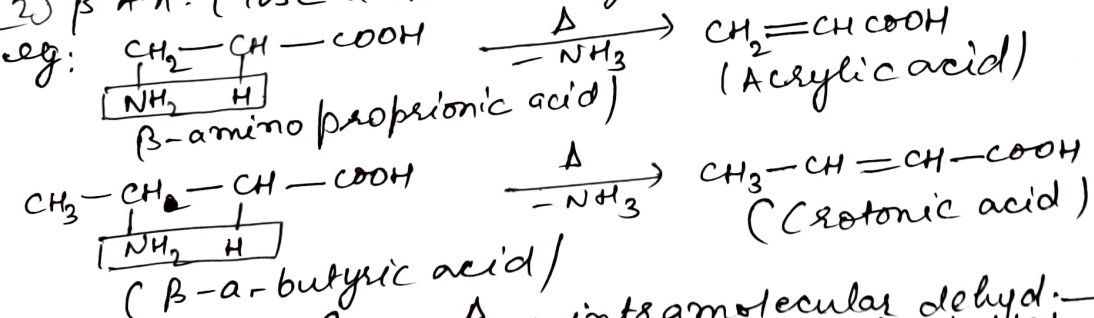 2) β
eg: CH₂—CH—COOH —Δ/−NH₃→ CH₂=CHCOOH
NH₂ H (Acrylic acid)
β-amino proprionic acid)
CH₃—CH—CH—COOH —Δ/−NH₃→ CH₃—CH=CH—COOH
NH₂ H (Crotonic acid)
(β-a-butyric acid)
Δ intramolecular dehyd:—